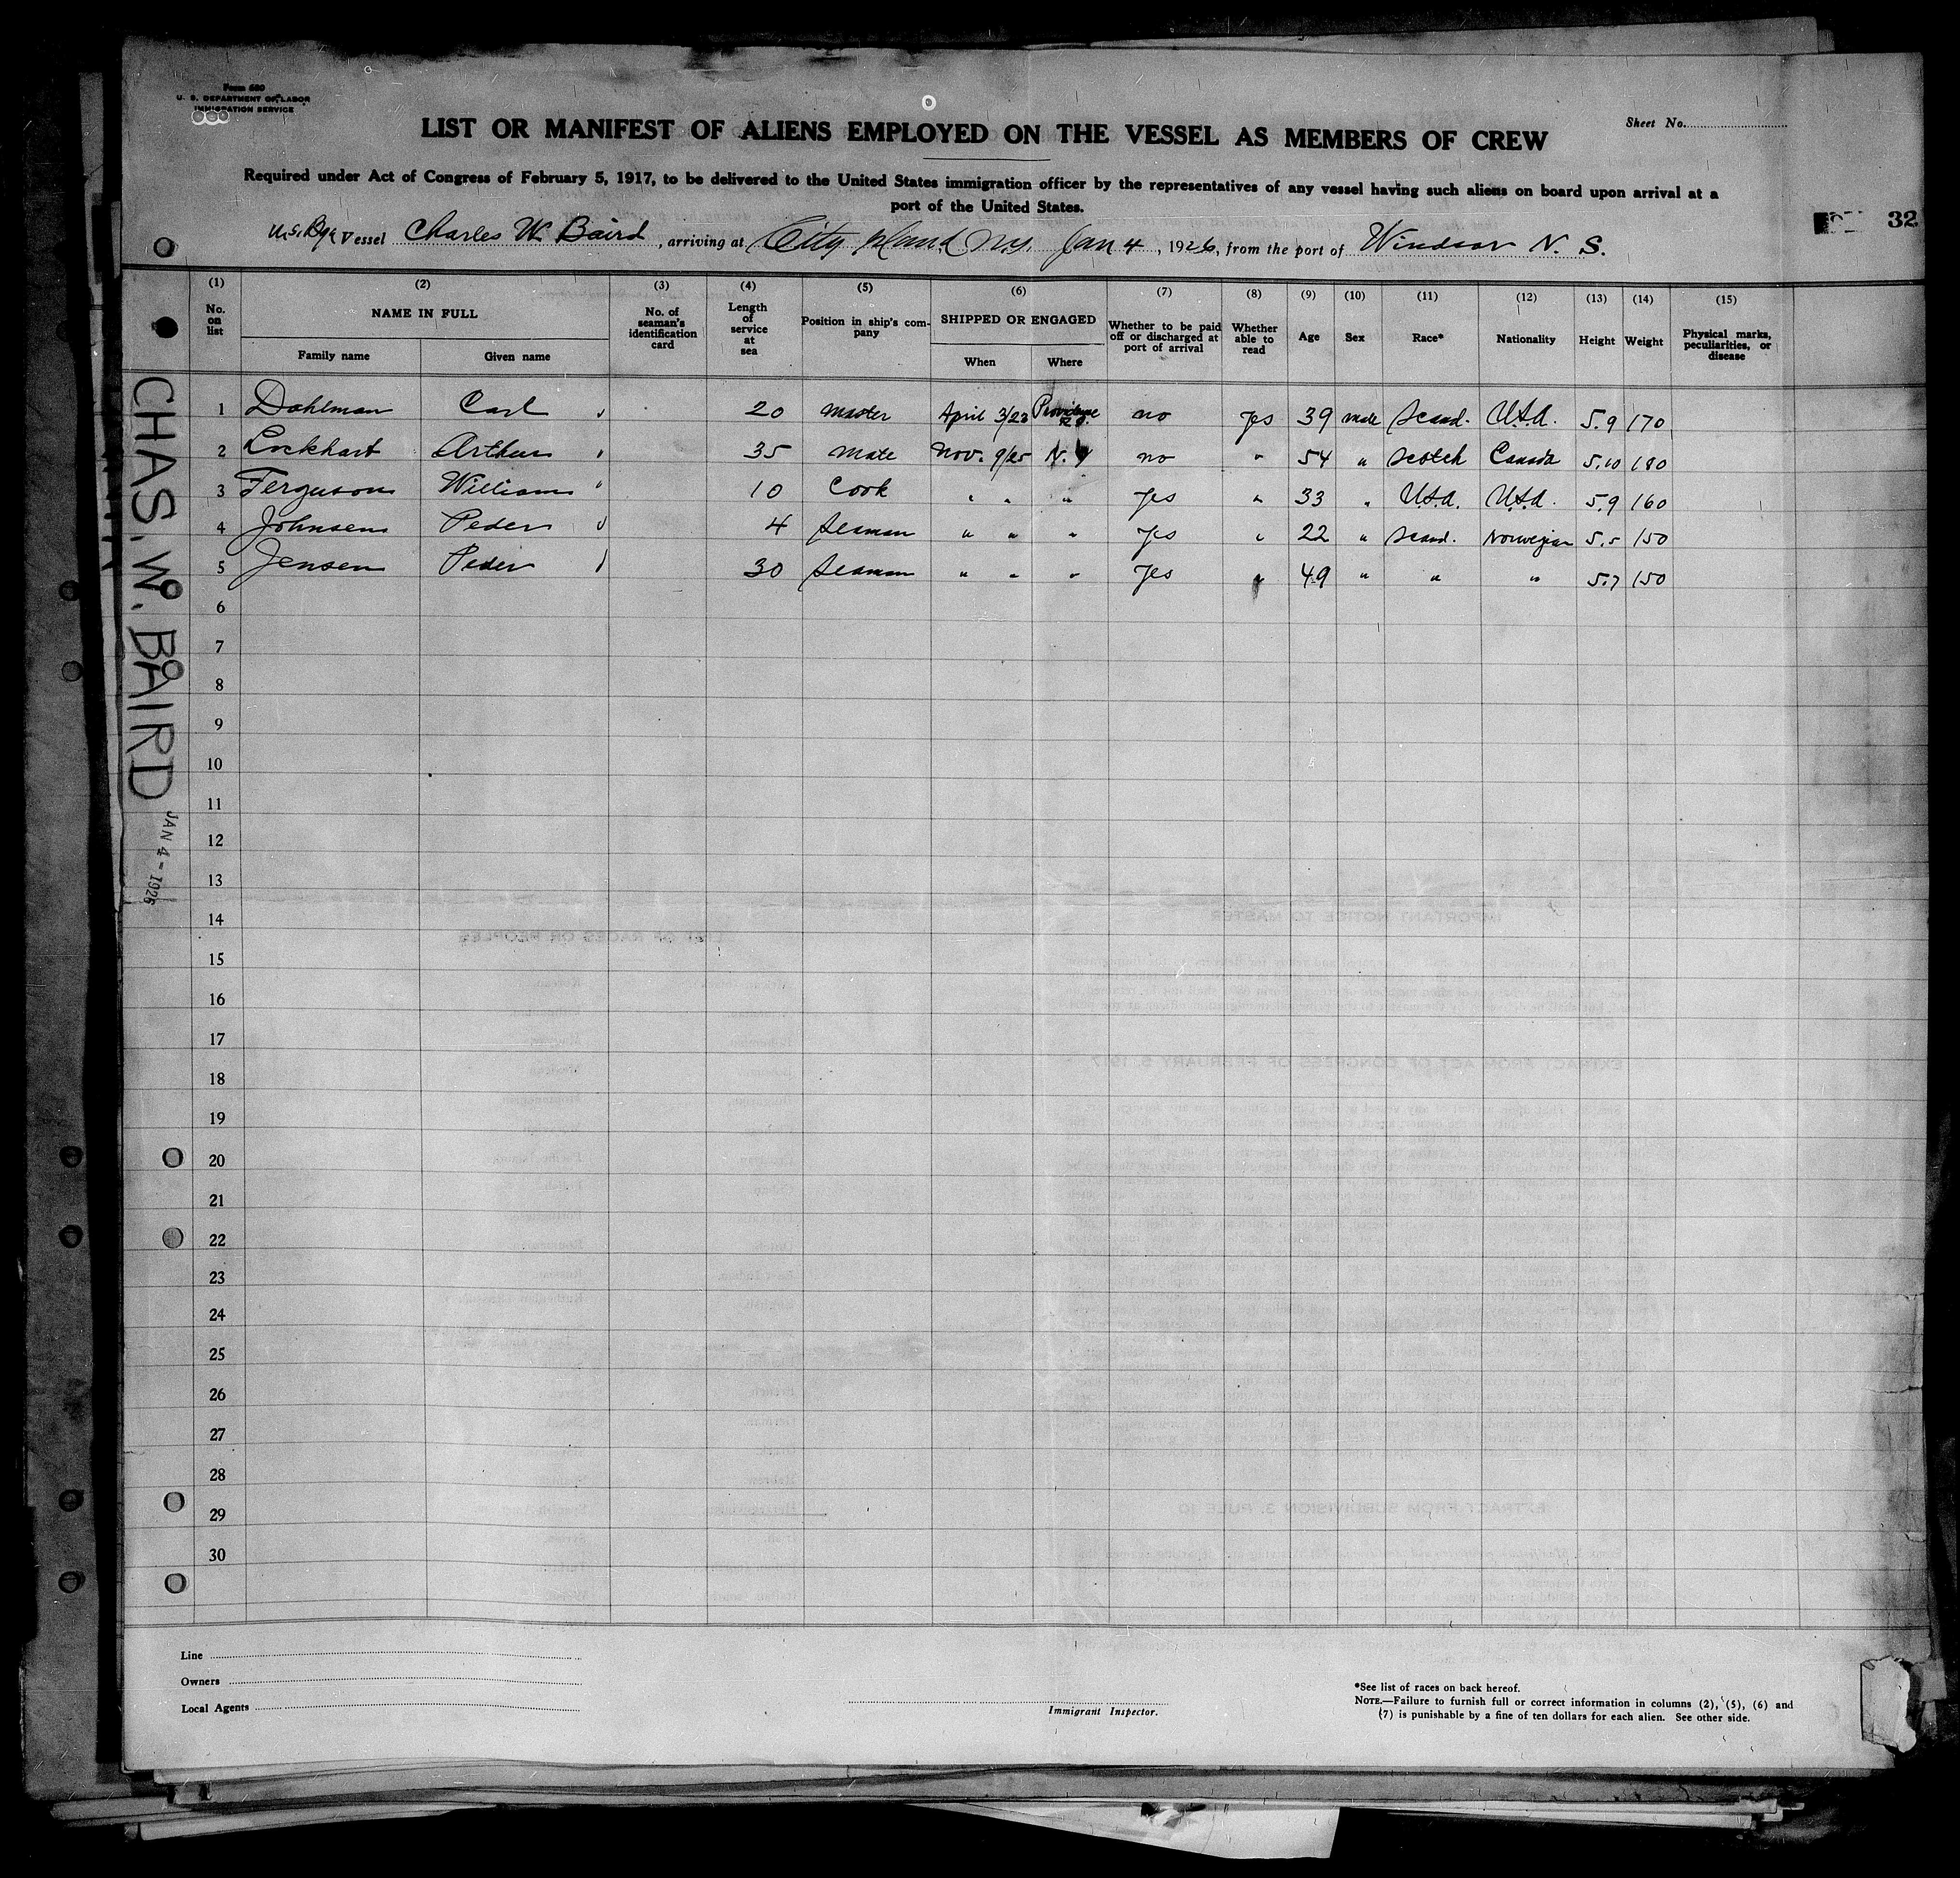 Form 680
U. S. DEPARTMENT OF LABOR
IMMIGRATION SERVICE
Sheet No.
LIST OR MANIFEST OF ALIENS EMPLOYED ON THE VESSEL AS MEMBERS OF CREW
Required under Act of Congress of February 5, 1917, to be delivered to the United States immigration officer by the representatives of any vessel having such aliens on board upon arrival at a
port of the United States.
32
Vessel Charles W. Baird, arriving at City Island N.Y. Jan 4, 1926, from the port of Windsor N. S.
(1) (2) (3) (4) (5) (6) (7) (8) (9) (10) (11) (12) (13) (14) (15)
No. on list NAME IN FULL No. of seaman's identification card Length of service at sea Position in ship's company SHIPPED OR ENGAGED Whether to be paid off or discharged at port of arrival Whether able to read Age Sex Race* Nationality Height Weight Physical marks, peculiarities, or disease
Family name Given name When Where
1 Dahlman Carl 20 master April 3/23 Providence R.I. no yes 39 male Scand. U.S.A. 5.9 170
2 Lockhart Arthur 35 mate Nov. 9/25 N.Y no " 54 " Scotch Canada 5.10 180
3 Ferguson William 10 Cook " " " Yes " 33 " U.S.A. U.S.A. 5.9 160
4 Johnsen Peder 4 Seaman " " " Yes " 22 " Scand. Norwegian 5.5 150
5 Jensen Peder 30 Seaman " " " Yes " 49 " " " 5.7 150
6
7
8
9
10
11
12
13
14
15
16
17
18
19
20
21
22
23
24
25
26
27
28
29
30
CHAS. W. BAIRD
JAN 4 - 1926
Line
Owners
Local Agents
Immigrant Inspector.
*See list of races on back hereof.
NOTE.—Failure to furnish full or correct information in columns (2), (5), (6) and
(7) is punishable by a fine of ten dollars for each alien. See other side.